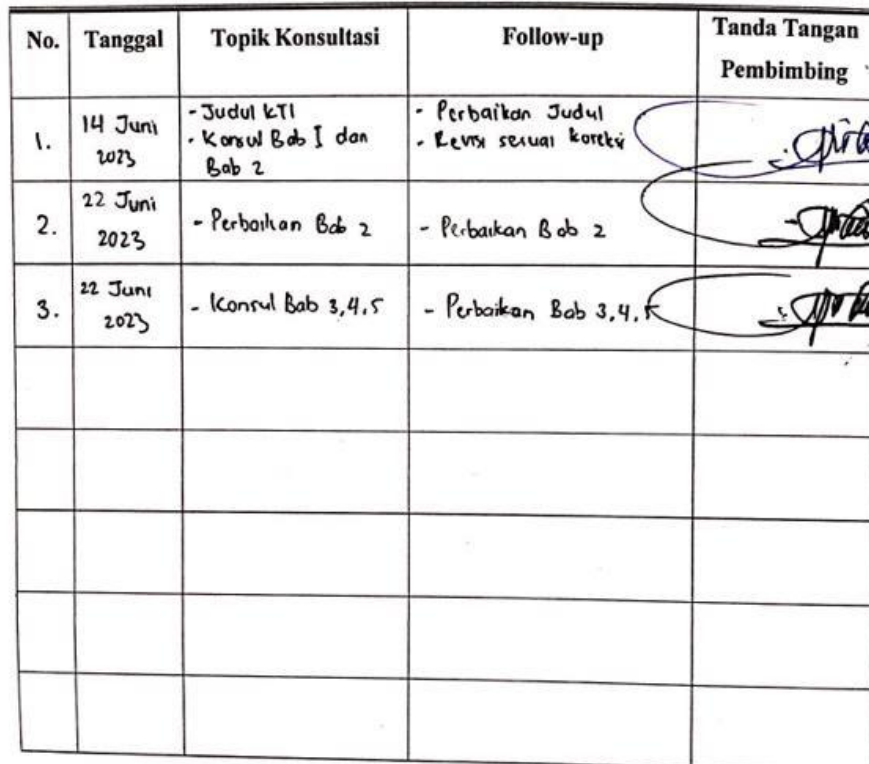 No. Tanggal Topik Konsultasi Follow-up Tanda Tangan
Pembimbing
1. 14 Juni 2023
- Judul KTI
- Konsul Bab I dan
Bab 2
- Perbaikan Judul
- Revisi sesuai koreksi
2. 22 Juni 2023
- Perbaikan Bab 2
- Perbaikan Bab 2
3. 22 Juni 2023
- Konsul Bab 3,4,5
- Perbaikan Bab 3,4,5